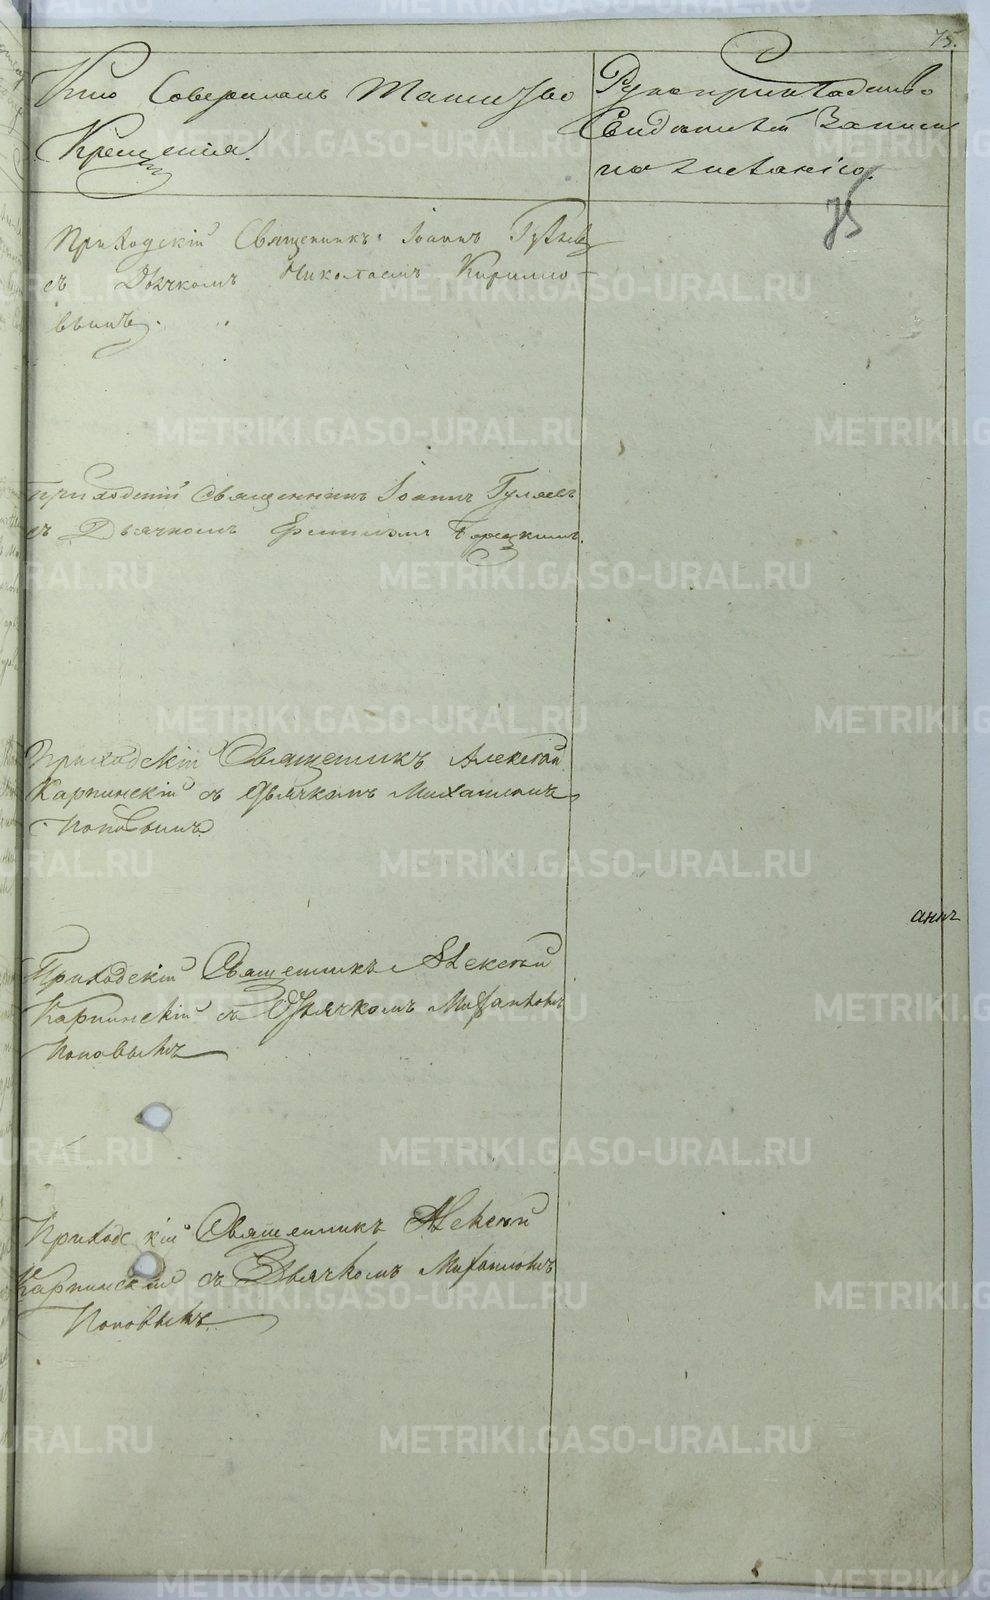 75.
Кто Совершалъ Таинство
Крещенія.
Рукоприкладство
Свидѣтелей Записи
по желанію.
75
Приходскій Священникъ Іоаннъ Гуляевъ
съ Дьячкомъ Николаемъ Кирилло-
вымъ.
Приходскій Священникъ Іоаннъ Гуляевъ
съ Дьячкомъ
Приходскій Священникъ Алексѣй
Карпинскій съ Дьячкомъ Михаиломъ
Поповымъ.
Приходскій Священникъ Алексѣй
Карпинскій съ Дьячкомъ Михаиломъ
Поповымъ
Приходскій Священникъ Алексѣй
Карпинскій съ Дьячкомъ Михаиломъ
Поповымъ.
METRIKI.GASO-URAL.RU